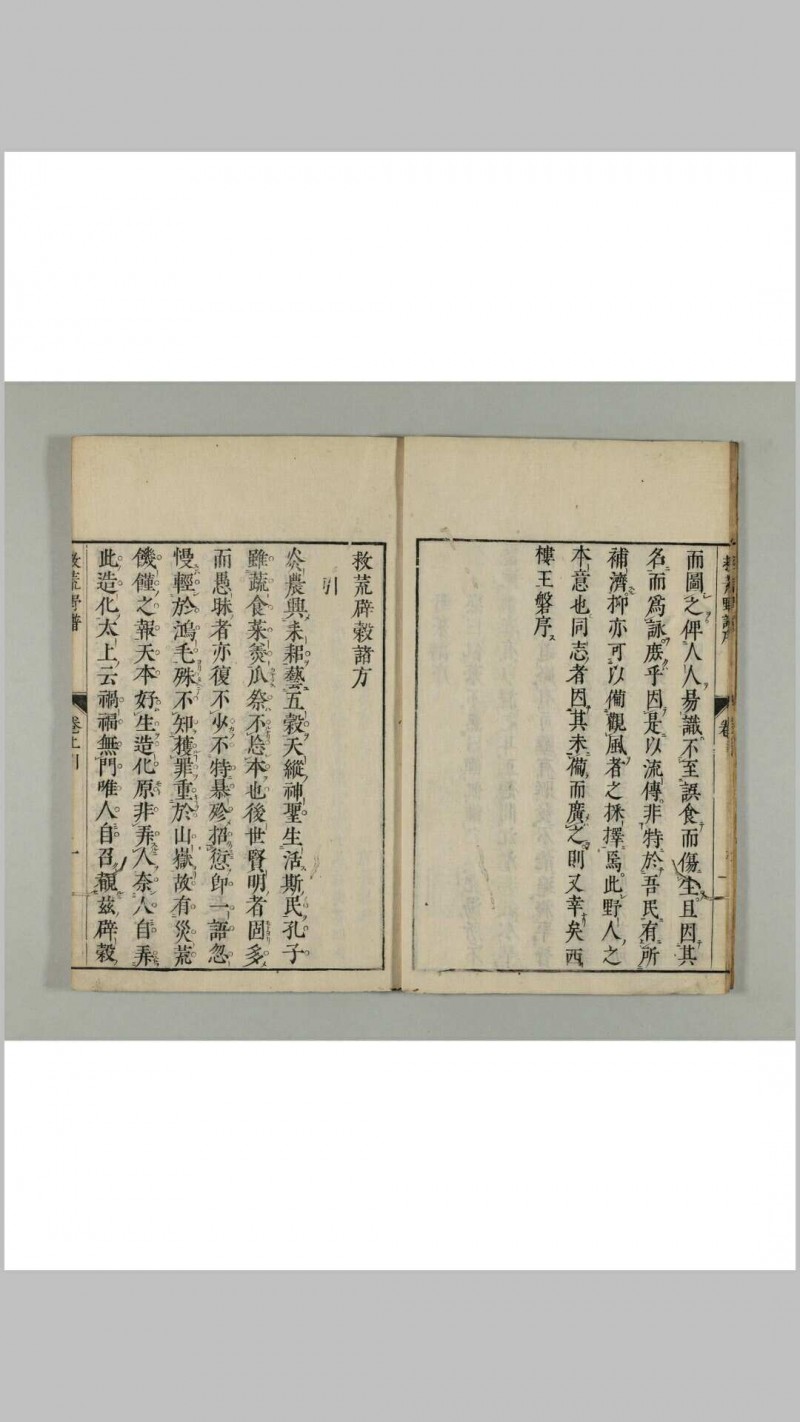 而圖之俾人人易識不至誤食而傷生且因其
名而爲詠庻乎因是以流傳非特於吾民有所
補濟抑亦可以僃觀風者之採擇焉此野人之
本意也同志者因其未僃而廣之則又幸矣西
樓王磐序
救荒辟穀諸方
引
炎農興耒耜藝五穀天縱神聖生活斯民孔子
雖蔬食菜羮瓜祭不忘本也後世賢明者固多
而愚昧者亦復不少不特暴殄招愆即一語忽
慢輕於鴻毛殊不知獲罪重於山嶽故有災荒
饑僅之報天本好生造化原非弄人奈人自弄
此造化太上云禍福無門唯人自召覩兹辟穀
救荒野譜 卷上 引 一